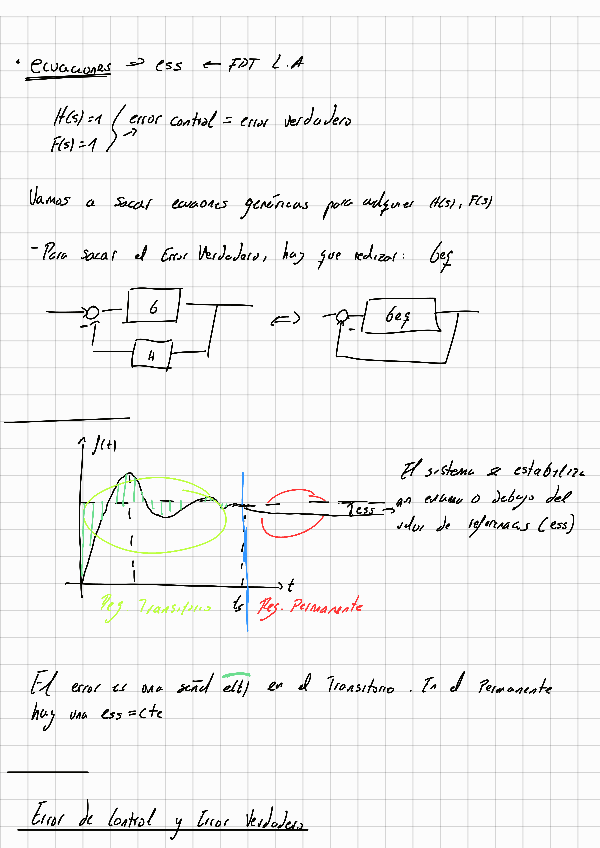 • ecuaciones ⇒ ess ← FDT L.A
H(s)=1
F(s)=1
error control = error verdadero
Vamos a sacar ecuaciones genéricas para cualquier H(s), F(s)
- Para sacar el Error Verdadero, hay que realizar: Geq
G
⇔
Geq
-
-
H
f(t)
El sistema se estabiliza
ess
o debajo del
valor de referencias (ess)
t
Reg Transitorio
ts
Reg. Permanente
El error es una señal e(t) en el Transitorio. En el Permanente
hay una ess = cte
Error de Control y Error Verdadero